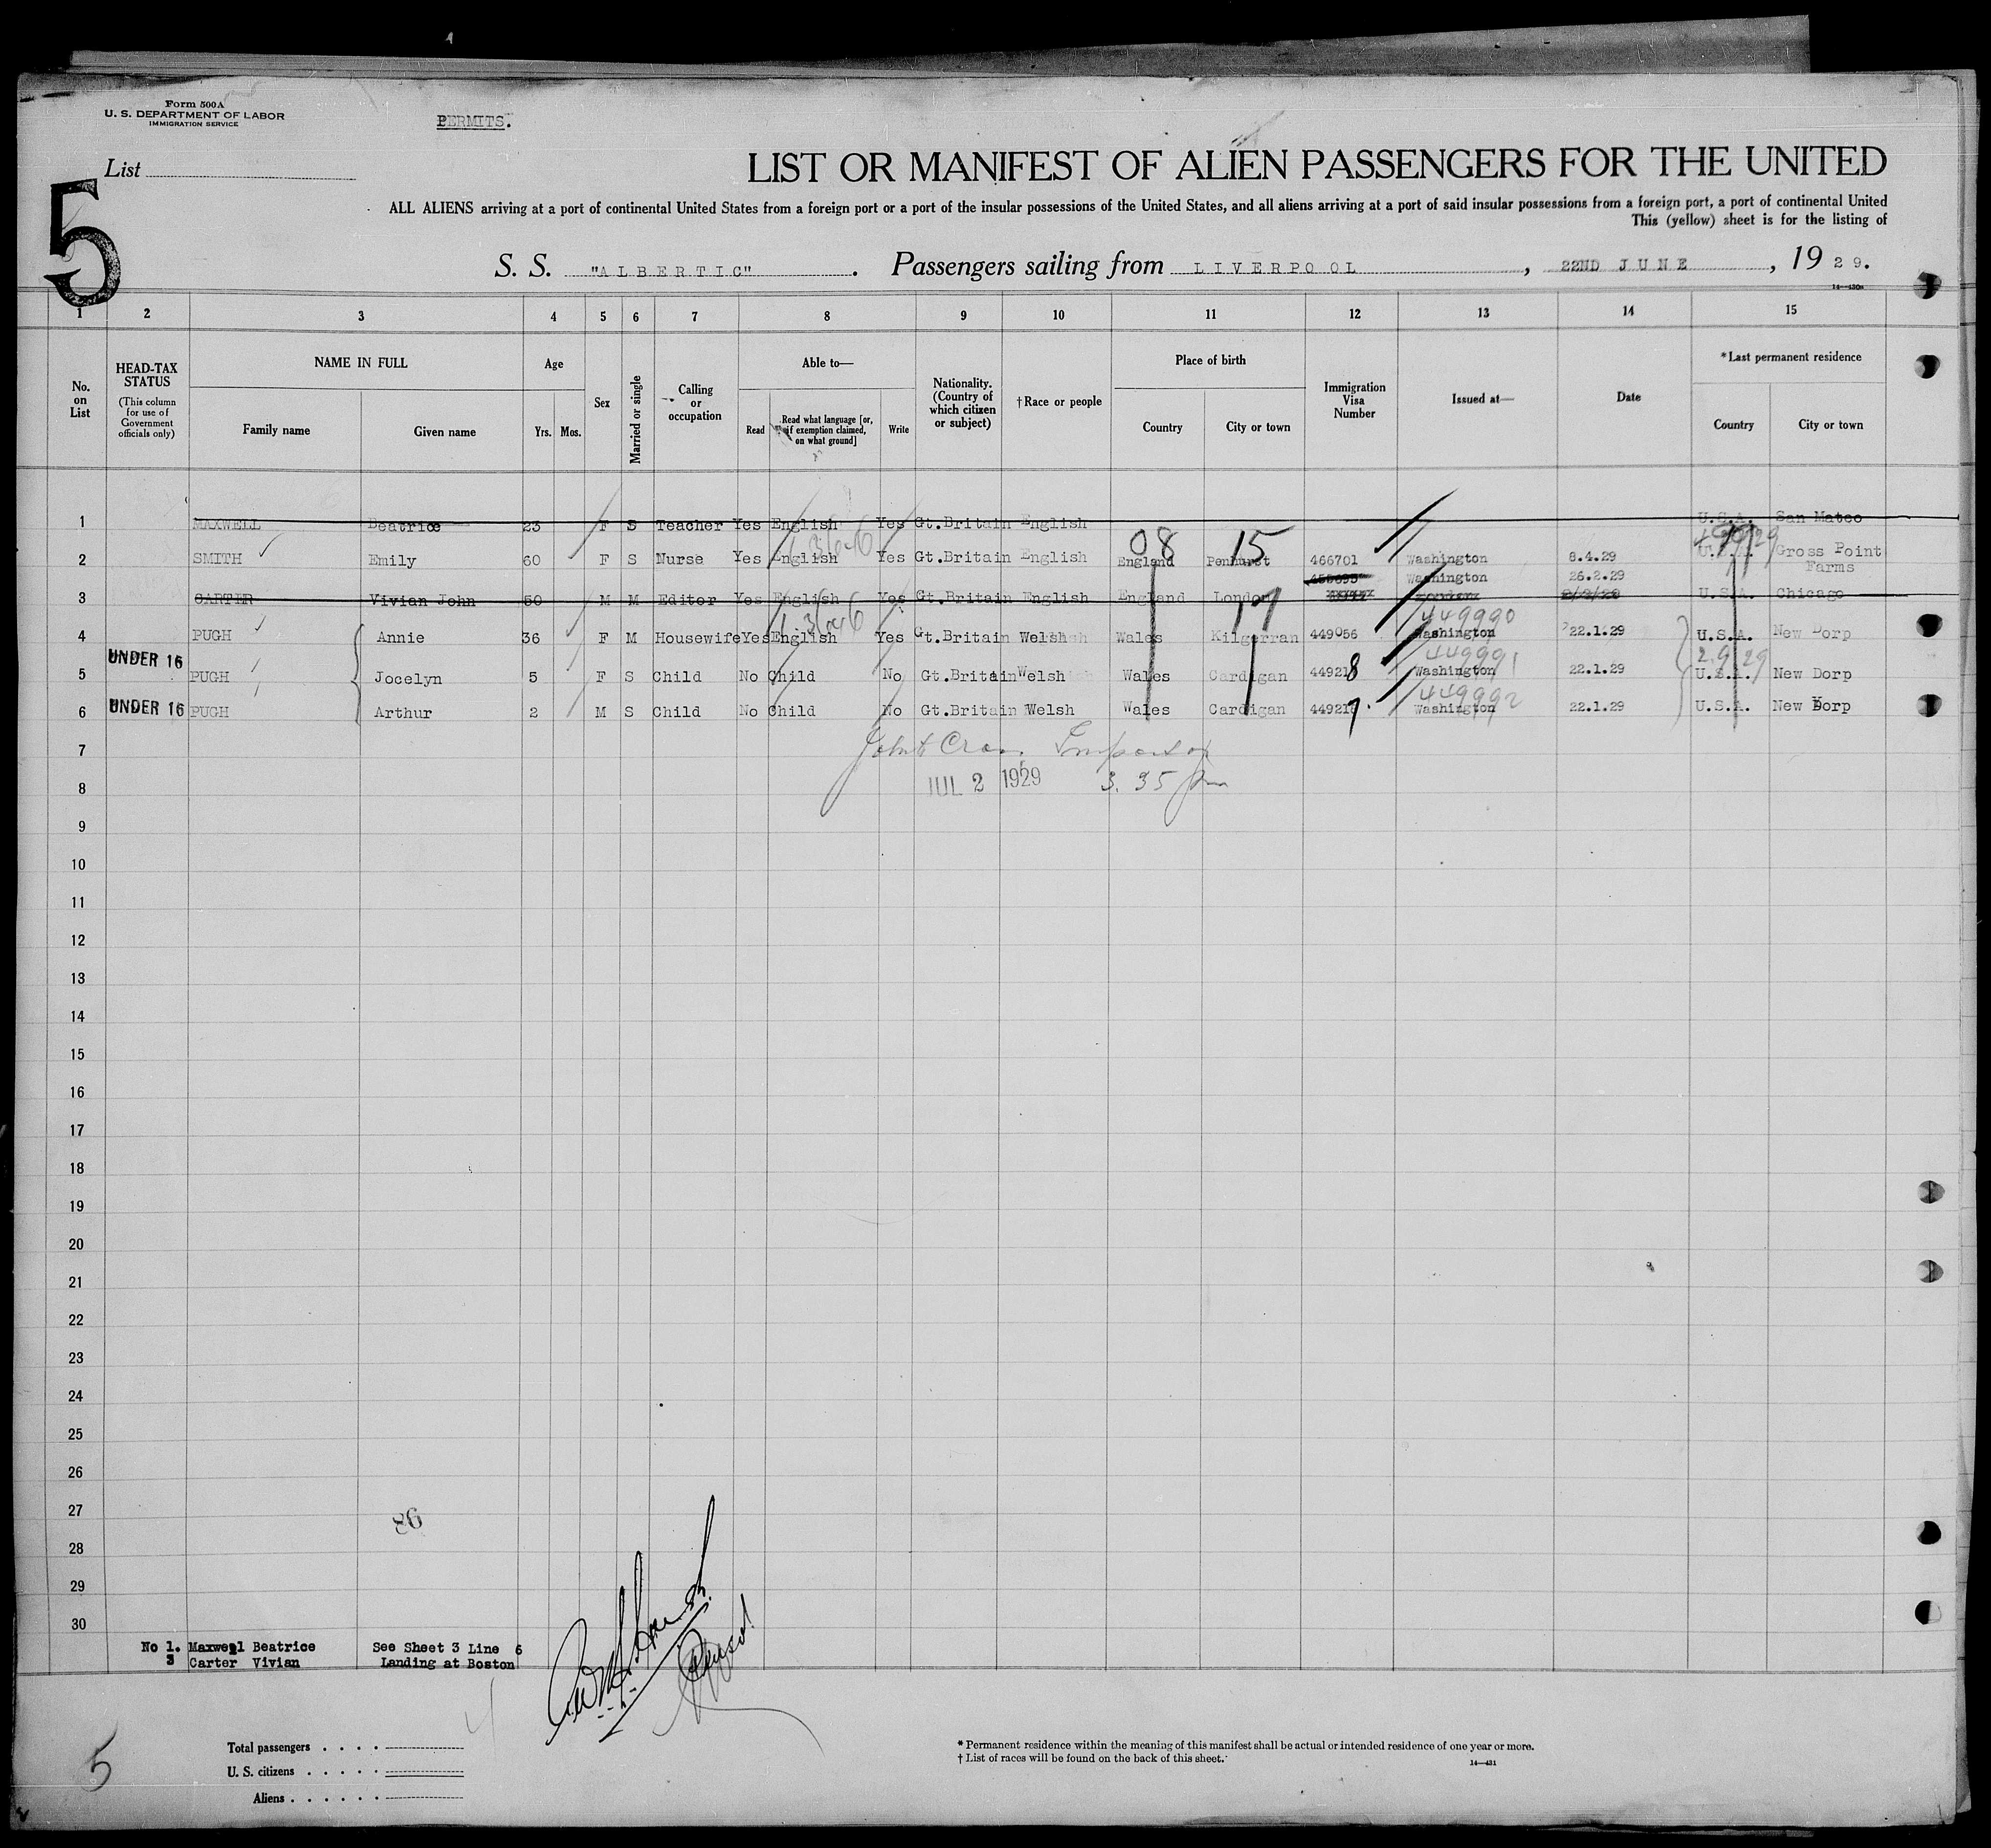 Form 500A
U. S. DEPARTMENT OF LABOR
IMMIGRATION SERVICE
PERMITS.
List
5
LIST OR MANIFEST OF ALIEN PASSENGERS FOR THE UNITED
ALL ALIENS arriving at a port of continental United States from a foreign port or a port of the insular possessions of the United States, and all aliens arriving at a port of said insular possessions from a foreign port, a port of continental United
This (yellow) sheet is for the listing of
S. S. "ALBERTIC". Passengers sailing from LIVERPOOL, 22ND JUNE, 1929.
14—430a
1 2 3 4 5 6 7 8 9 10 11 12 13 14 15
No. on List
HEAD-TAX STATUS
(This column for use of Government officials only)
NAME IN FULL
Family name Given name
Age
Yrs. Mos.
Sex
Married or single
Calling or occupation
Able to—
Read
Read what language [or, if exemption claimed, on what ground]
Write
Nationality. (Country of which citizen or subject)
†Race or people
Place of birth
Country City or town
Immigration Visa Number
Issued at—
Date
*Last permanent residence
Country City or town
1 MAXWELL Beatrice 23 F S Teacher Yes English Yes Gt.Britain English U.S.A. San Mateo
08 15
2 SMITH Emily 60 F S Nurse Yes English Yes Gt.Britain English England Penhurst 466701 Washington 8.4.29 U.S.A. Gross Point Farms
Washington 26.2.29
3 CARTER Vivian John 50 M M Editor Yes English Yes Gt.Britain English England London U.S.A. Chicago
17 449990
4 PUGH Annie 36 F M Housewife Yes English Yes Gt.Britain Welsh Wales Kilgerran 449056 Washington 22.1.29 U.S.A. New Dorp
449991 2 9 29
UNDER 16
5 PUGH Jocelyn 5 F S Child No Child No Gt.Britain Welsh Wales Cardigan 449218 Washington 22.1.29 U.S.A. New Dorp
449992
UNDER 16
6 PUGH Arthur 2 M S Child No Child No Gt.Britain Welsh Wales Cardigan 449217 Washington 22.1.29 U.S.A. New Dorp
7
JUL 2 1929 3.35 pm
8
9
10
11
12
13
14
15
16
17
18
19
20
21
22
23
24
25
26
27
86
28
29
30
No 1. Maxwell Beatrice See Sheet 3 Line 6
3 Carter Vivian Landing at Boston
5
Total passengers . . . .
U. S. citizens . . . . .
Aliens . . . . . .
* Permanent residence within the meaning of this manifest shall be actual or intended residence of one year or more.
† List of races will be found on the back of this sheet.
14—431